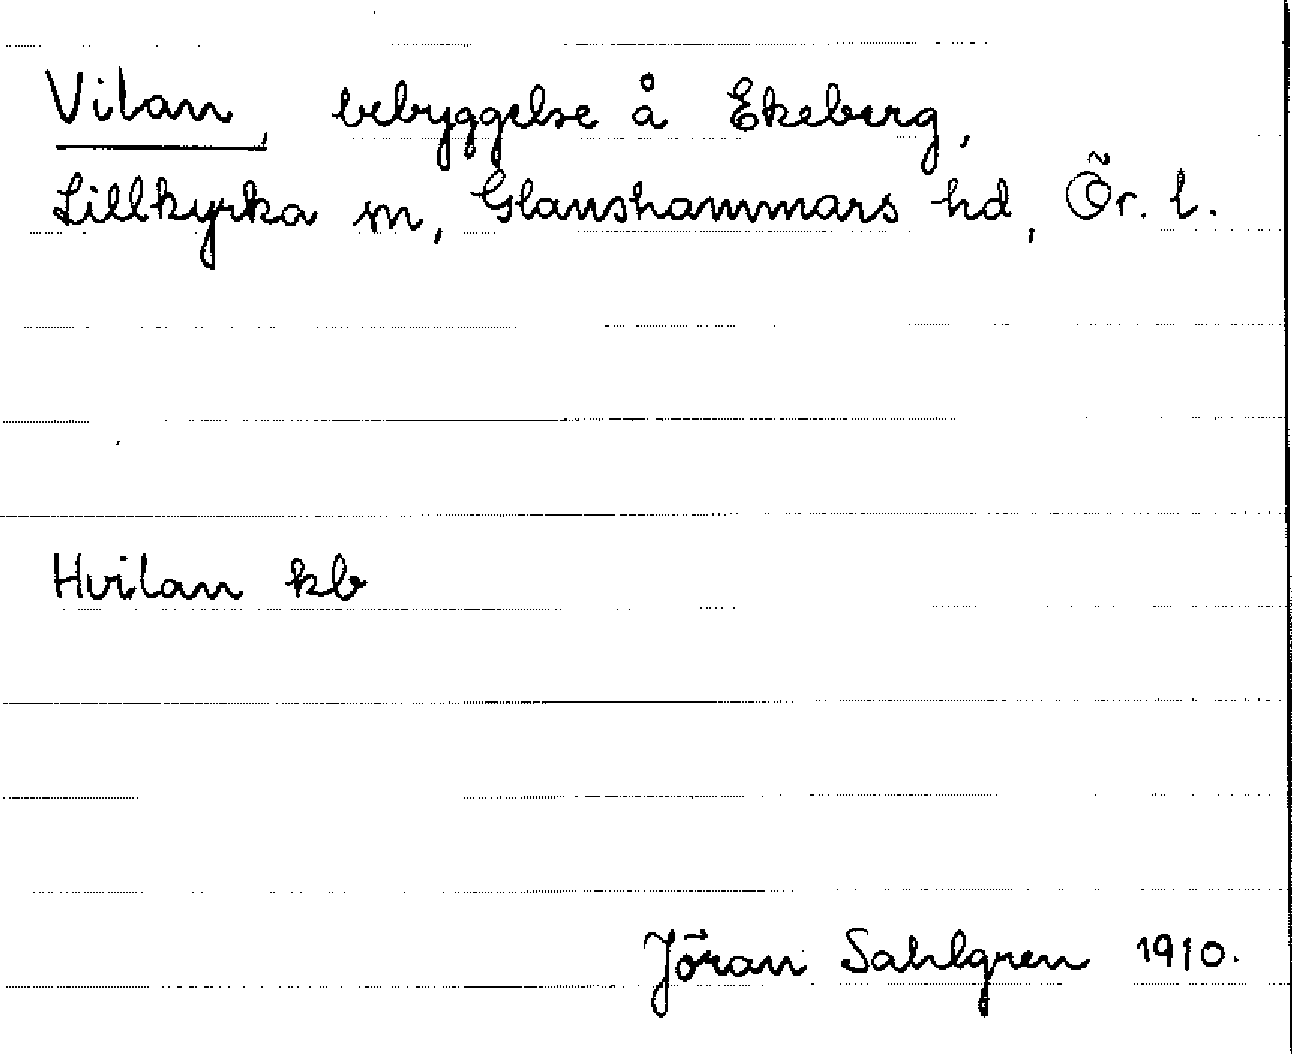 Vilan, bebyggelse å Ekeberg,
Lillkyrka sn, Glanshammars hd, Ör. l.
Hvilan kb
Jöran Sahlgren 1910.